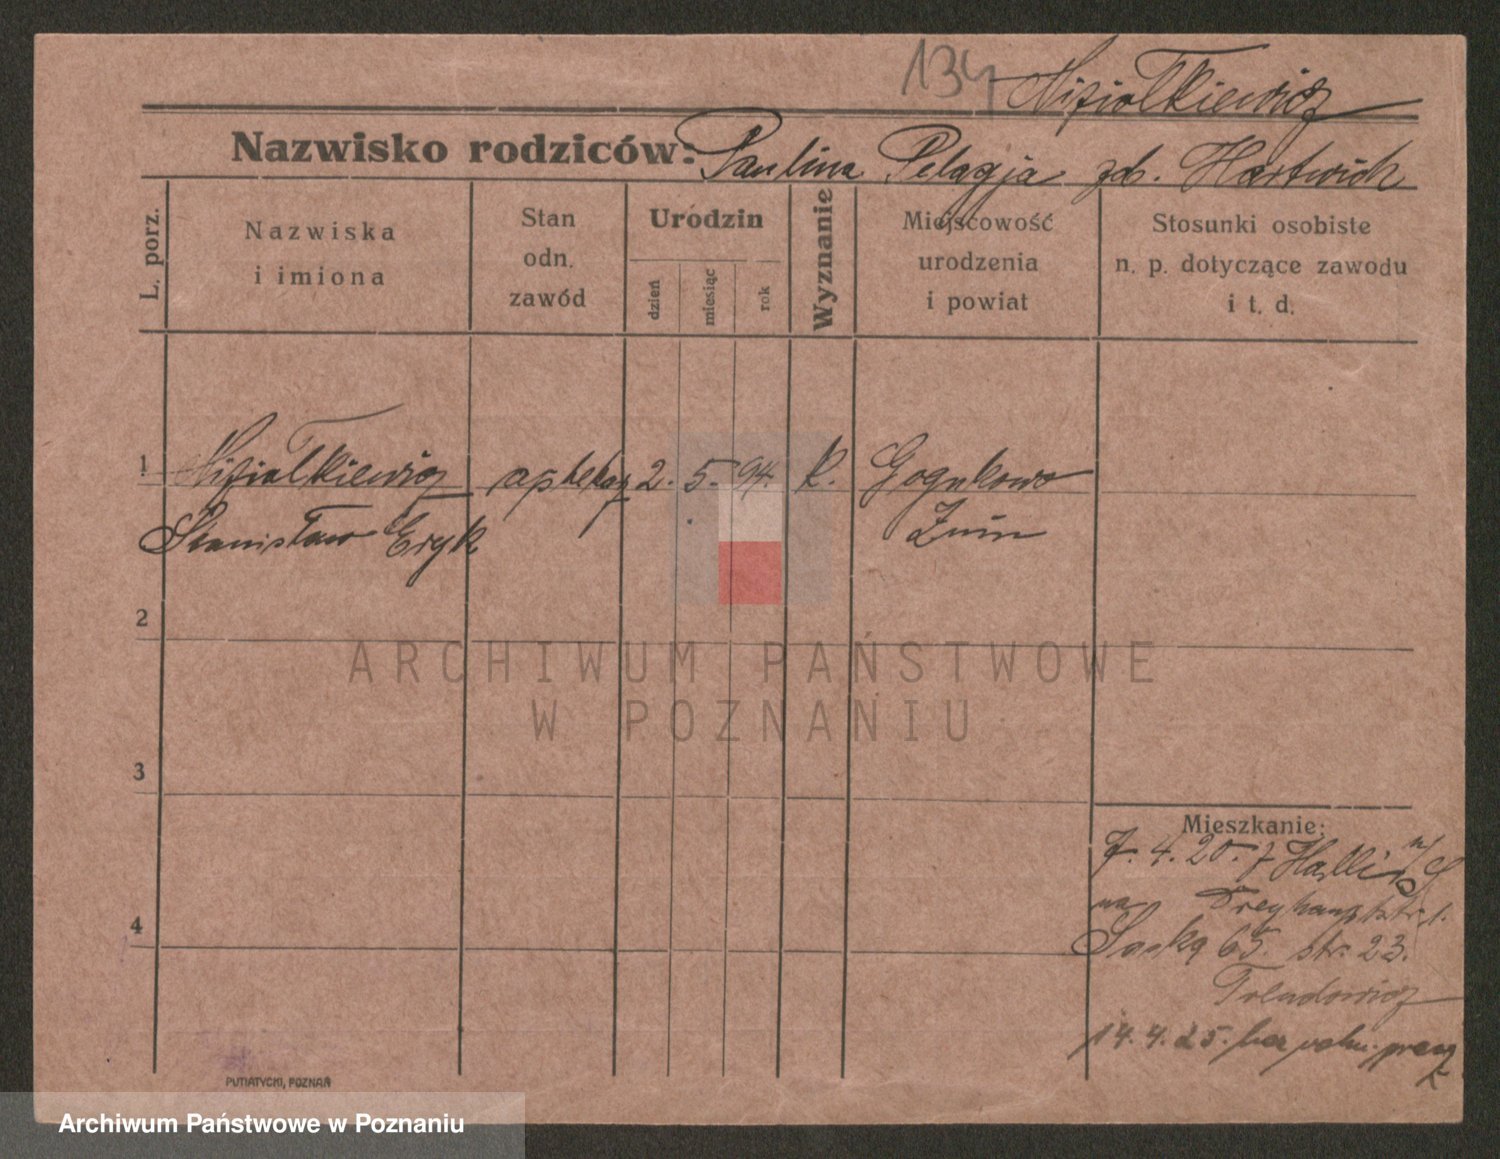 134
Niziołkiewicz
Nazwisko rodziców: Paulina Pelagja zd. Hartwich
L. porz.
Nazwiska
i imiona
Stan
odn.
zawód
Urodzin
dzień
miesiąc
rok
Wyznanie
Miejscowość
urodzenia
i powiat
Stosunki osobiste
n. p. dotyczące zawodu
i t. d.
1 Niziołkiewicz aptekarz 2. 5. 94. k.
Stanisław Eryk Żnin
2
3
4
Mieszkanie:
7. 4. 20. z Halli n/S
na
65. str. 23.
14. 4. 25.
PUTIATYCKI, POZNAŃ
ARCHIWUM PAŃSTWOWE
W POZNANIU
Archiwum Państwowe w Poznaniu